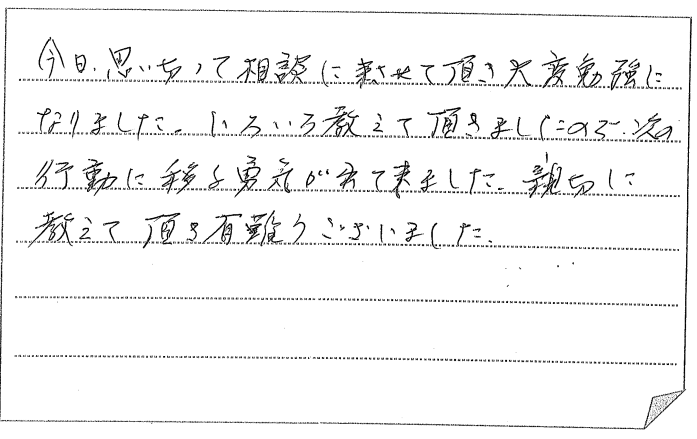 今日、思い切って相談に来させて頂き大変勉強に
なりました。いろいろ教えて頂きましたので、次の
行動に移る勇気が出て来ました。親切に
教えて頂き有難うございました。